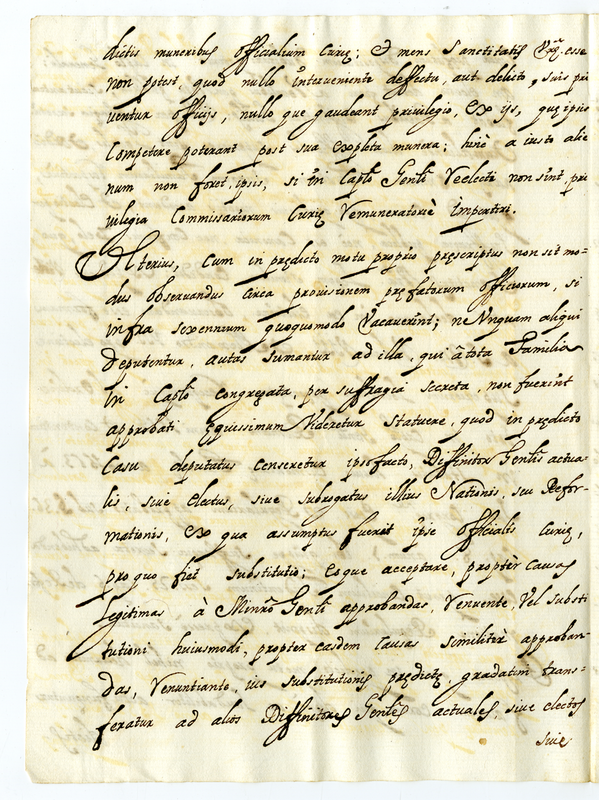 dictis muneribus officialium Curię; & mens Sanctitatis Vrę̃ esse
non potest, quod nullo interveniente deffectu, aut delicto, suis pri
ventur officijs, nullo que gaudeant privilegio, ex ijs, quę ipsis
Competere poterant post sua expleta munera; hinc a iusto alie
num non foret, ipsis, si in Caplõ Genlĩ reelecti non sint pri
uilegia Commissariorum Curię remuneratoriè impertiri.
Vlterius, Cum in prędicto motu proprio pręscriptus non sit mo=
dus observandus circa provisionem pręfatorum officiorum, si
infra sexennium quoquomodo Vacaverint; ne Vnquam aliqui
deputentur, aut assumantur ad illa, qui à tota Familia
In Caplõ congregata, per suffragia secreta, non fuerint
approbati ęquissimum Videretur statuere, quod in prędicto
Casu deputatus censeretur ipsofacto, Diffinitor Genlis actua=
lis, siue electus, siue subrogatus illius Nationis, seu Refor=
mationis, ex qua assumptus fuerat ipse officialis Curię,
pro quo fiet substitutio; eoque acceptare, propter Causas
legitimas à Minrõ Genlĩ approbandas, renuente, Vel substi
tutioni huiusmodi, propter easdem Causas similitèr approban=
das, renuntiante, ius substitutionis prędictę, gradatim trans=
feratur ad alios Diffinitores Genles actuales, siue electos
siue